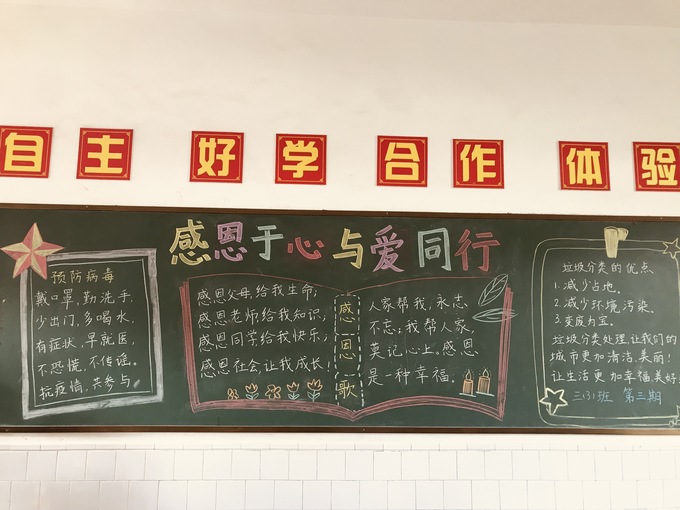 自主 好学 合作 体验
感恩于心与爱同行
预防病毒
戴口罩,勤洗手,
少出门,多喝水,
有症状,早就医,
不恐慌,不传谣。
抗疫情,共参与。
感恩父母,给我生命;
感恩老师,给我知识;
感恩同学,给我快乐;
感恩社会,让我成长!
感恩歌
人家帮我,永志
不忘;我帮人家,
莫记心上。感恩
是一种幸福。
垃圾分类的优点
1.减少占地。
2.减少环境污染。
3.变废为宝。
垃圾分类处理让我们的
城市更加清洁美丽!
让生活更加幸福美好!
三(3)班 第三期